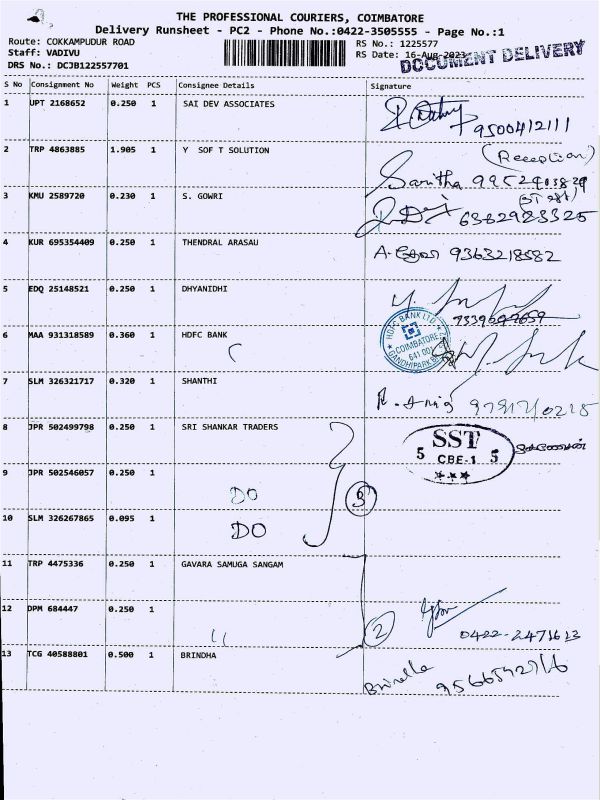 THE PROFESSIONAL COURIERS, COIMBATORE
Delivery Runsheet - PC2 - Phone No.:0422-3505555 - Page No.:1
Route: COKKAMPUDUR ROAD
RS No.: 1225577
Staff: VADIVU
RS Date: 16-Aug-2023
DOCUMENT DELIVERY
DRS No.: DCJB122557701
S No Consignment No Weight PCS Consignee Details Signature
1 UPT 2168652 0.250 1 SAI DEV ASSOCIATES
9500412111
2 TRP 4863885 1.905 1 Y SOF T SOLUTION
(Reception)
Saritha
3 KMU 2589720 0.230 1 S. GOWRI
6382983325
4 KUR 695354409 0.250 1 THENDRAL ARASAU
9363218582
5 EDQ 25148521 0.250 1 DHYANIDHI
6 MAA 931318589 0.360 1 HDFC BANK
HDFC BANK LTD
COIMBATORE
641 001
7 SLM 326321717 0.320 1 SHANTHI
8 JPR 502499798 0.250 1 SRI SHANKAR TRADERS
SST
5 CBE-1 5
9 JPR 502546057 0.250 1
DO
3
10 SLM 326267865 0.095 1
DO
11 TRP 4475336 0.250 1 GAVARA SAMUGA SANGAM
12 DPM 684447 0.250 1
2
0422-2471613
13 TCG 40588801 0.500 1 BRINDHA